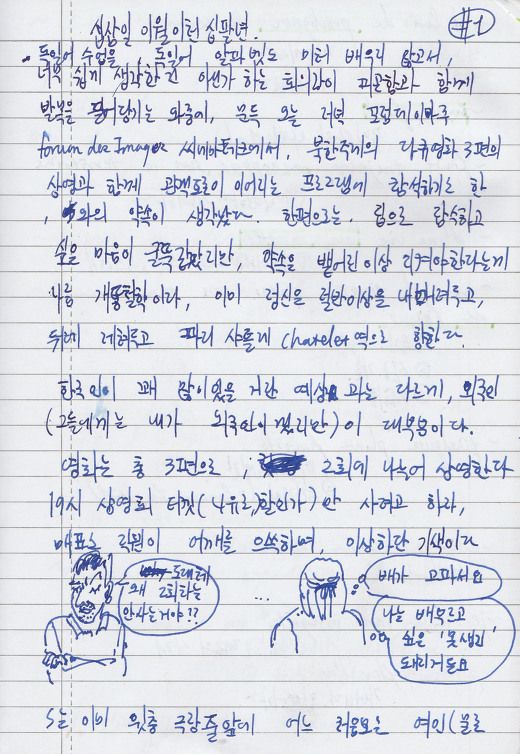 #1
독일어 수업을, 독일어 알파벳도 미처 배우지 않고서,
너무 쉽게 생각한건 아닌가 하는 회의감이 피곤함과 함께
발목을 끌어당기는 와중에, 문득 오늘 저녁
forum des Images 씨네마테크에서, 북한주제의 다큐영화 3편의
상영과 함께 관객토론이 이어지는 프로그램에 참석하기로 한
, 와의 약속이 생각났다. 한편으로는, 집으로 잠수하고
싶은 마음이 굴뚝같지만, 약속을 뱉어린이상 지켜야한다는게
나름 개똥철학이라, 이미 정신은 절반이상을 내버려두고,
뒤에 파리 샤틀레 Chatelet 역으로 향한다.
한국인이 꽤 많이 있을 거란 예상과는 다르게, 외국인
(그들에게는 내가 외국인이겠지만)이 대부분이다.
영화는 총 3편으로, 2회에 나눠어 상영한다
19시 상영회 티켓(4유로, 할인가)만 사려고 하자,
매표소 직원이 어깨를 으쓱하며, 이상하단 기색이다
도대체
왜 2회차는
안사는거야??
...
배가 고파서요
나는 배부르고
싶은 '못생긴'
돼지거든요
S는 이미 윗층 극장 줄앞에 어느 처음보는 여인(물론